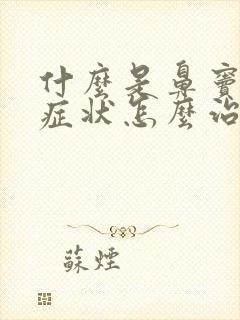 什麼是鼻竇
症狀怎麼治
蘇煙